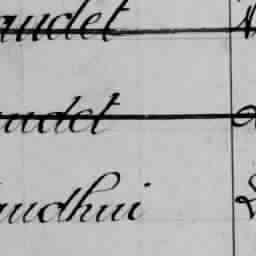 audet
audet
audhui